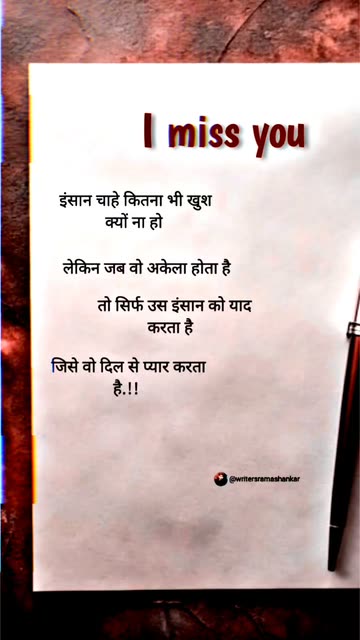 I miss you
इंसान चाहे कितना भी खुश
क्यों ना हो
लेकिन जब वो अकेला होता है
तो सिर्फ उस इंसान को याद
करता है
जिसे वो दिल से प्यार करता
है.!!
@writersramashankar